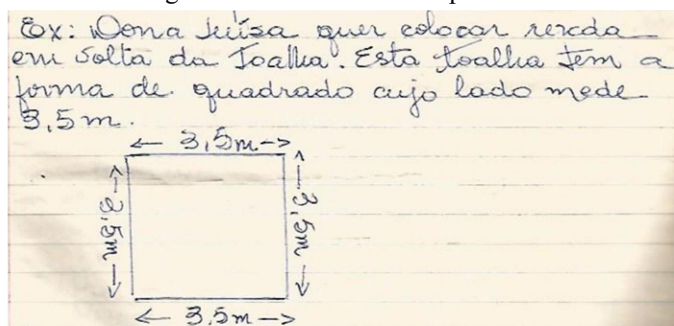 Ex: Dona Luísa quer colocar renda
em volta da Toalha. Esta toalha tem a
forma de quadrado cujo lado mede
3,5 m.
← 3,5m →
← 3,5m →
← 3,5m →
← 3,5m →